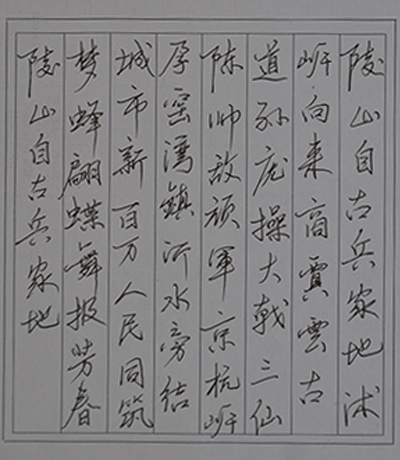 陵山自古兵家地沭
岸向来商賈雲古
道孙庞操大戟三仙
陈帅敌顽軍京杭岸
孕窑灣鎮沂水旁结
城市新百万人民同筑
梦蜂翩蝶舞报芳春
陵山自古兵家地